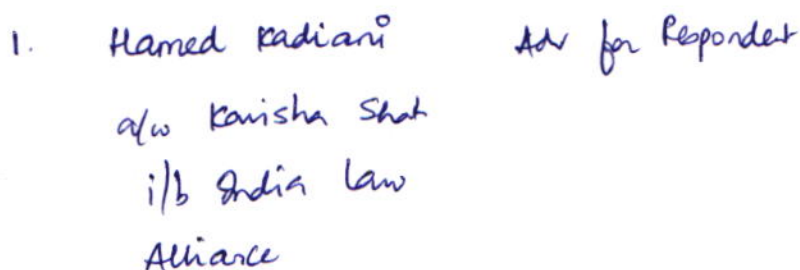 1. Hamed Kadiani Adv for Respondent
a/w Kanisha Shah
i/b India Law
Alliance